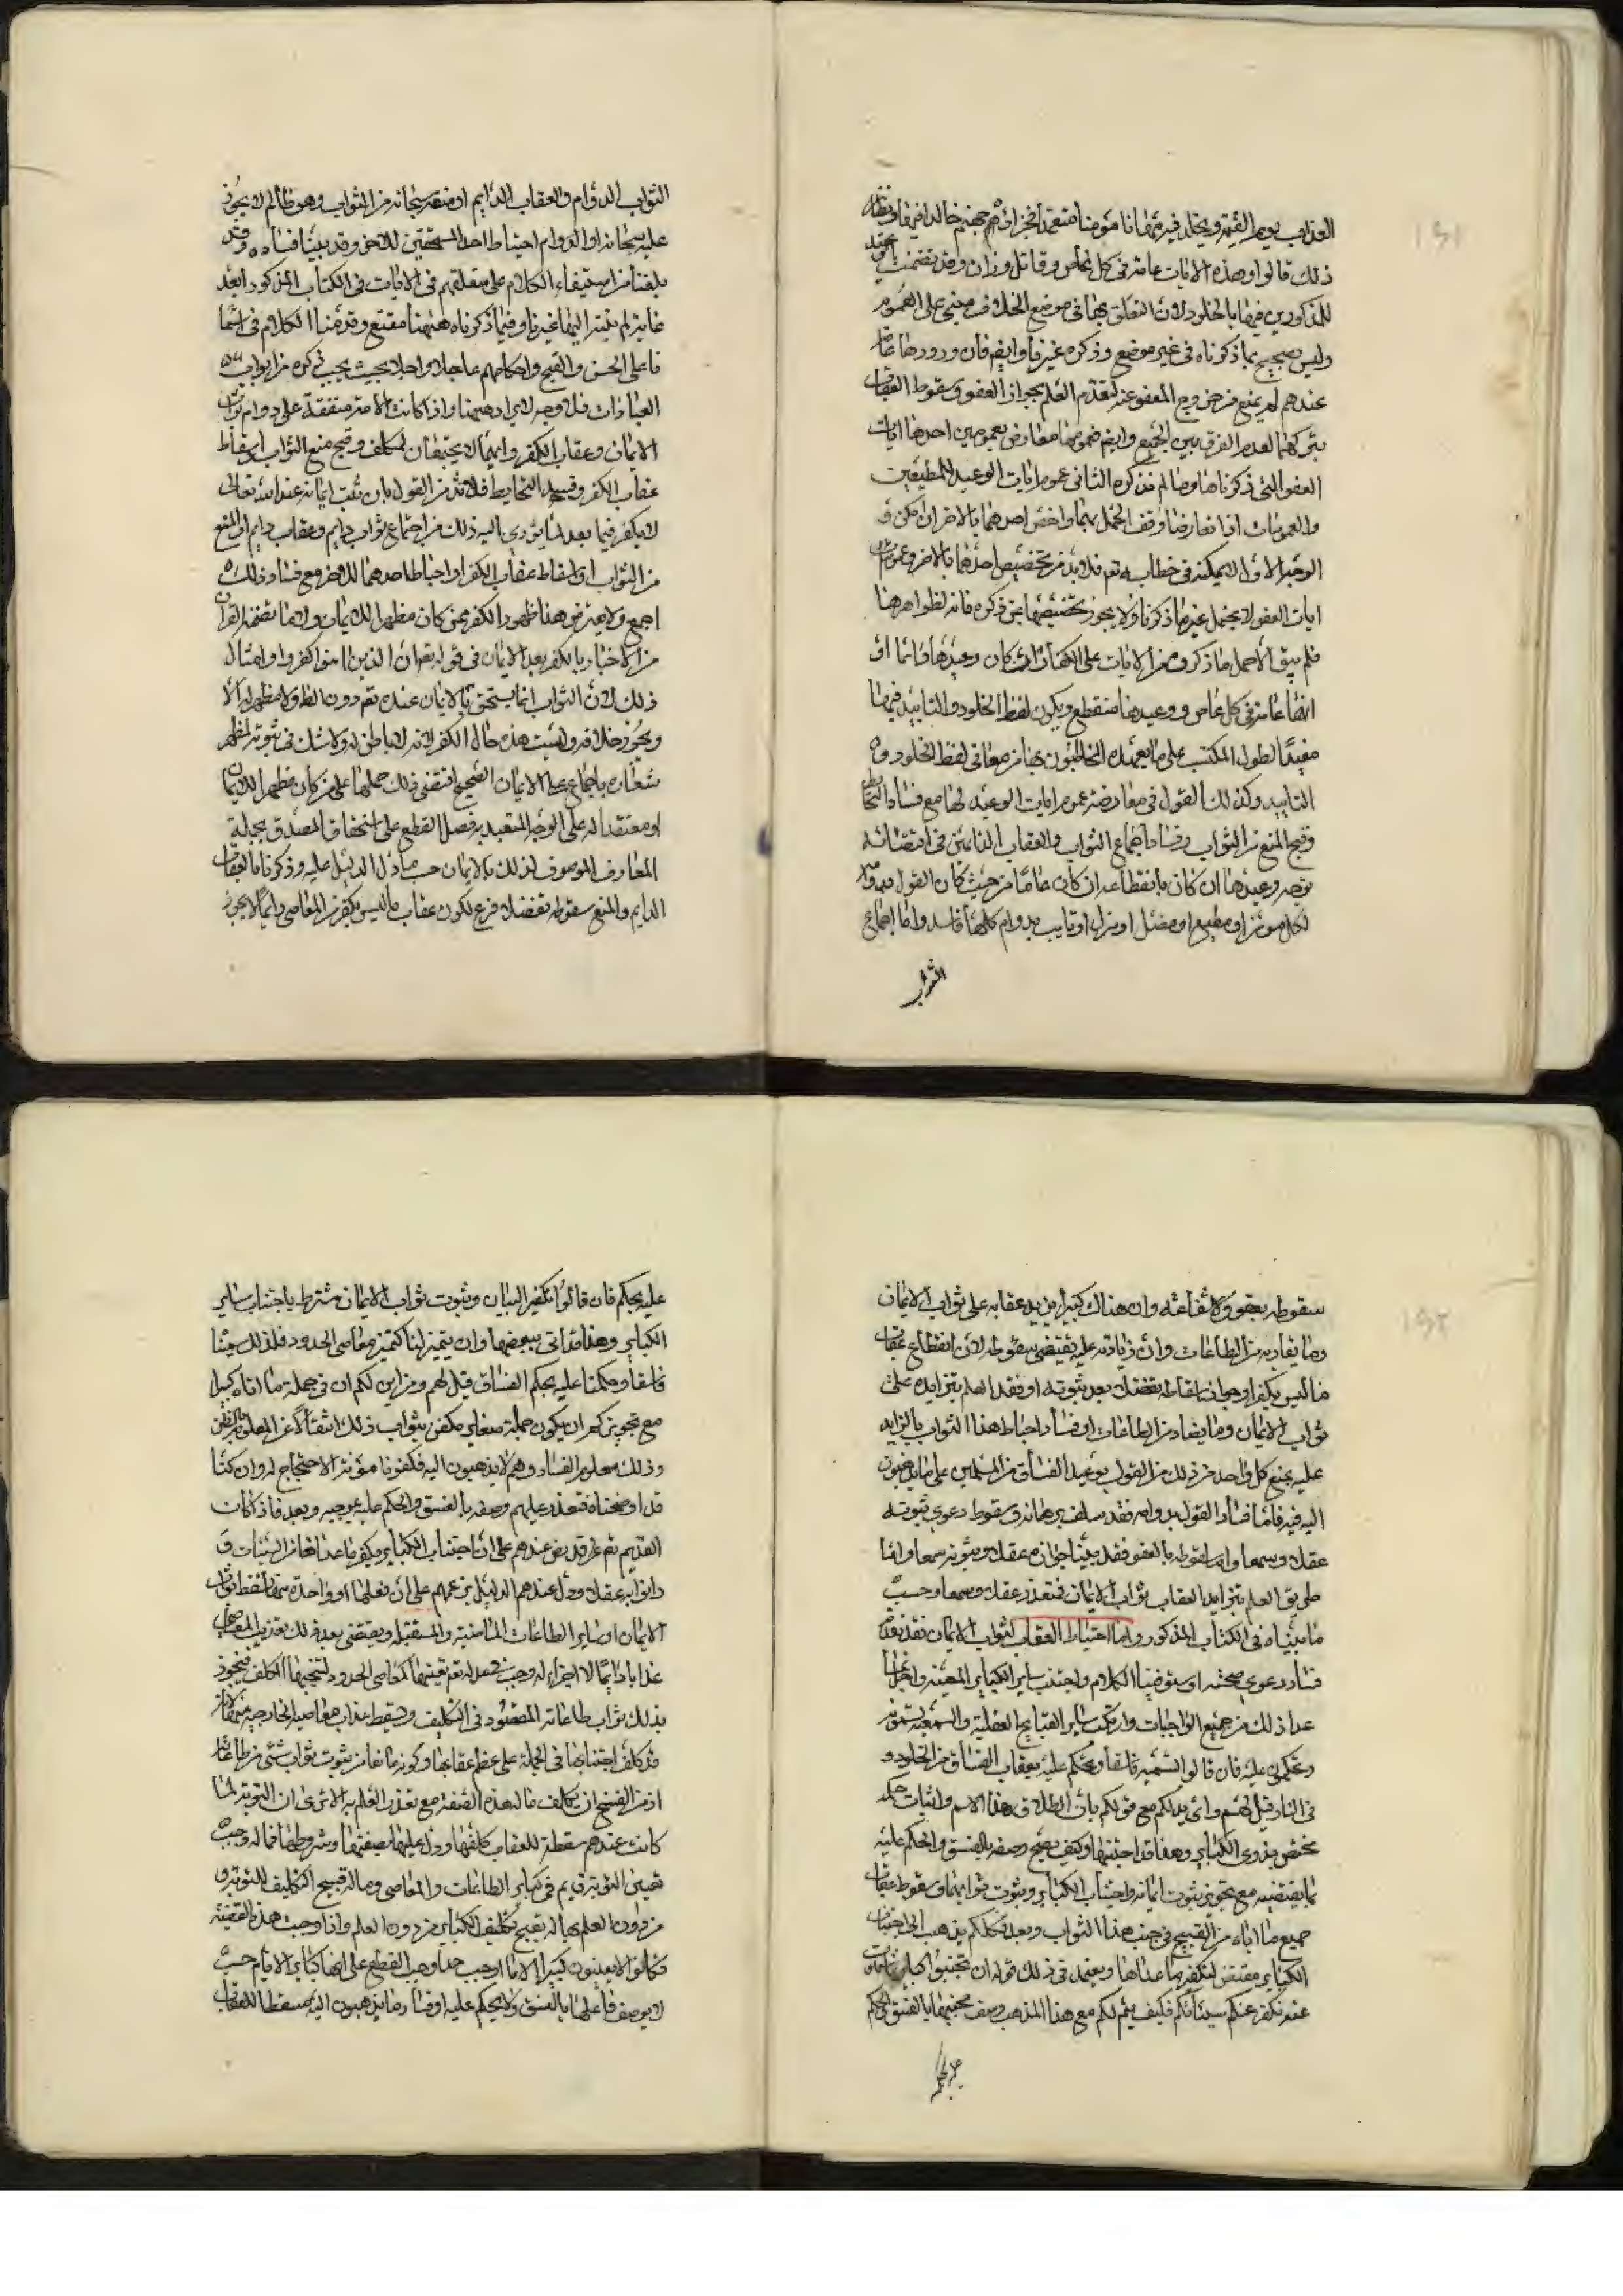 العذاب يوم القيمة ويخلد فيه مهانا مؤمنا متعمدا فجزاؤه جهنم خالدا فيها ونظائر
ذلك قالوا وهذه الايات عامة في كل عاص وقاتل وزان وقد تضمنت
للمذكورين فيها بالخلود لان التعلق بها في موضع الخلاف مبني على العموم
وليس بصحيح بما ذكرناه في غير موضع وذكره غيرنا وايضم فان ورودها عاما
عندهم لم يمنع من خروج المعفو عنه لتقدم العلم بجواز العفو وسقوط العقاب
العفو التي ذكرناها وما لم نذكره الثاني عموم ايات الوعيد للمطيعين
والعمومات اذا تعارضا وقف الحمل بهما واخص احدهما بالاخر ان امكن و
الوجه الاول لا يمكن في خطابه تعم فلا بد من تخصيص احدهما بالاخر وعموم
ايات العفو لا يحتمل غير ما ذكرنا ولا يجوز تخصيصها
فلم يبق الا حمل ما ذكروه من الايات على الكفار وان كان وعيدها دائما او
انها عامة في كل عاص ووعيدها منقطع ويكون لفظ الخلود والتابيد فيها
مفيدا لطول المكث على ما يعهده المخاطبون بها من معاني لفظ الخلود و
التابيد وكذلك القول في معارضة عموم ايات الوعيد لها مع فساد التحابط
وقبح المنع من الثواب وفساد اجتماع الثواب والعقاب الدائمين في اقتضائه
وعيدها ان كان بانقطاعه ان كان عاما من حيث كان القول بدوامه
لكل مؤمن او مطيع او مفضل او تايب بدوام كلها فاسد واما اجتماع
الثواب
الثواب الدوام والعقاب الدايم او منعه سبحانه من الثواب وهو ظالم لا يجوز
عليه سبحانه او الدوام احباط احد المستحقين للاخر وقد بينا فساده وقد
بلغنا من استيفاء الكلام على متعلقهم في الايات في الكتاب المذكور ابعد
غاية لم ينته اليها غيرنا وفيما ذكرناه ههنا مقنع وقدمنا الكلام في اسما
فاعلي الحسن والقبح واحكامهم عاجلا واجلا بحيث يجب ذكره من ابواب
العبادات فلا وجه لايراده ههنا واذا كانت الامة متفقة على دوام ثواب
الايمان وعقاب الكفر وانهما لا يجتمعان لمكلف وقبح منع الثواب واسقاط
عقاب الكفر وفسد التحابط فلا بد من القول بان ثبت ايمانه عند الله تعالى
لا يكفر فيما بعد لما يؤدي اليه ذلك من اجتماع ثواب دايم وعقاب دايم او المنع
من الثواب او اسقاط عقاب الكفر او احباط احدهما للاخر مع فساد ذلك
اجمع ولا يعترض هذا ظهور الكفر ممن كان مظهرا للايمان ولا ما تضمنه القران
من الاخبار بالكفر بعد الايمان في قوله تعم ان الذين امنوا ثم كفروا وامثال
ذلك لان الثواب انما يستحق بالايمان عنده تعم دون
ويجوز خلافه وليست هذه حال الكفر
شعاره باجماع الايمان الصحيح اقتضى ذلك حملها على من كان مظهرا للايمان
او معتقدا له على الوجه المتعبد به فصل القطع على استحقاق المصدق بجملة
المعارف الموصوف لذلك بالايمان حسب ما دل الدليل عليه وذكرنا ما العقاب
الدايم والمنع سقوطه تفضلا فرع لكون عقاب ما ليس بكفر من المعاصي دايما لا يجوز
سقوطه بعفو ولا شفاعة وان هناك كبيرا يزيد عقابه على ثواب الايمان
وما يقارنه من الطاعات وان زيادته عليه يقتضي سقوطه لان انقطاع عقاب
ما ليس بكفر او جواز اسقاطه تفضلا بعد ثبوته او فقد العلم بتزايده على
ثواب الايمان وما يقارن من الطاعات او فساد احباط هذا الثواب بالزايد
عليه يمنع كل واحد من ذلك من القول بوعيد الفساق من المسلمين على ما يذهبون
اليه فيه فاما فساد القول بدوامه فقد سلف برهانه وسقوط دعوى ثبوته
عقلا وسمعا واما سقوطه بالعفو فقد بينا جوازه عقلا وثبوته سمعا واما
طريق العلم بتزايد العقاب بثواب الايمان فمتعذر عقلا وسمعا وحسب
ما بيناه في الكتاب المذكور واما احتياط العقاب لثواب الايمان فقد تقدم
فساد دعوى صحته او ستوفينا الكلام واجتنب ساير الكباير المعينة
عدا ذلك من جميع الواجبات وارتكب ساير القبايح العقلية والسمعية
وتحكمون عليه فان قالوا نسميه فاسقا ونحكم عليه بعقاب الفساق من الخلود
في النار قيل لهم واي بد لكم مع قولكم بان اطلاق هذا الاسم واثبات حكمه
مختص بذوي الكباير وهذا قد اجتنبها وكيف يصح وصفه بالفسق والحكم عليه
بما يقتضيه مع تجويز ثبوت ايمانه واجتناب الكباير وثبوت ثوابهما وسقوط عقاب
جميع ما اتاه من القبيح في جنب هذا الثواب وبعد فكلكم يذهب الى اجتناب
الكباير مقتض لتكفير ما عداها ويعتمد في ذلك قوله ان تجتنبوا كباير ما تنهون
عنه نكفر عنكم سيئاتكم فكيف يتم لكم مع هذا المذهب وصف مجتنبها بالفسق
عليه بحكم فان قالوا تكفير السيئات وثبوت ثواب الايمان مشترط باجتناب ساير
الكباير وهذا قد اتى ببعضها وان يتميز لنا كتميز معاصي الحدود فلذلك سميناه
فاسقا وحكمنا عليه بحكم الفساق قيل لهم ومن اين لكم ان في جملة ما اتاه كبيرا
مع تجويزكم ان يكون جملة صغاير مكفرة بثواب ذلك انتقالا عن المعلوم
وذلك معلوم الفساد وهم لا يذهبون اليه فكفونا مؤنة الاحتجاج له وان كنا
قد اوضحناه فتعذر عليهم وصفه بالفسق والحكم عليه بموجبه وبعد فاذا كان
القديم تعم قد نص عندهم على ان اجتناب الكباير يكفر ما عداها من السيئات و
ودل عندهم الدليل بزعمهم على ان فعلها او واحدة منها يسقط ثواب
الايمان او ساير الطاعات الماضية والمستقبلة ويقتضي
عذابا دايما لا اخر له وجب تعيينها كمعاصي الحدود ليتجنبها المكلف فيحوز
بذلك ثواب طاعاته المقصود في التكليف ويسقط عذاب معاصيه الخارجة
قد كلف اجتنابها في الجملة على عظم عقابها وكونه مانعا من ثبوت ثواب شيء من طاعاته
اذ من القبيح ان يكلف ما له هذه الصفة مع تعذر العلم به الا ترى ان التوبة لما
كانت عندهم مسقطة للعقاب كلفها ودل عليها بصفتها وشروطها فما له وجب
تعيين التوبة في كباير الطاعات والمعاصي وما له قبح التكليف للتوبة
من دون العلم بها له يقبح تكليف الكباير من دون العلم واذا وجبت هذه القضية
وكانوا لا يعينون كبيرا الا ما اوجب حدا وجب القطع على انها كباير الاثام حسب
لا يوصف فاعلها بالفسق ولا يحكم عليه او فساد ما يذهبون اليه مسقطا للعقاب